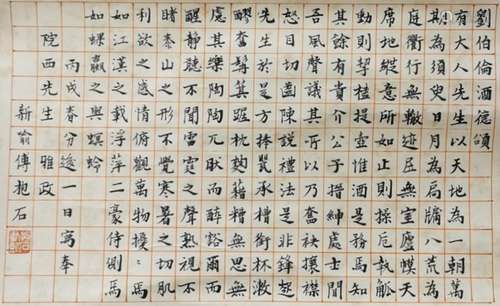 劉伯倫酒德頌
有大人先生以天地為一朝萬
期為須臾日月為扃牖八荒為
庭衢行無轍迹居無室廬幕天
席地縱意所如止則操卮執觚
動則挈榼提壺惟酒是務焉知
其餘有貴介公子搢紳處士聞
吾風聲議其所以乃奮袂攘襟
怒目切齒陳說禮法是非鋒起
先生於是方捧甖承槽銜杯漱
醪奮髯箕踞枕麴藉糟無思無
慮其樂陶陶兀然而醉豁爾而
醒靜聽不聞雷霆之聲熟視不
睹泰山之形不覺寒暑之切肌
利欲之感情俯觀萬物擾〻焉
如江漢之載浮萍二豪侍側焉
如蜾蠃之與螟蛉
丙戌春分後一日寫奉
院西先生雅政
新喻傅抱石